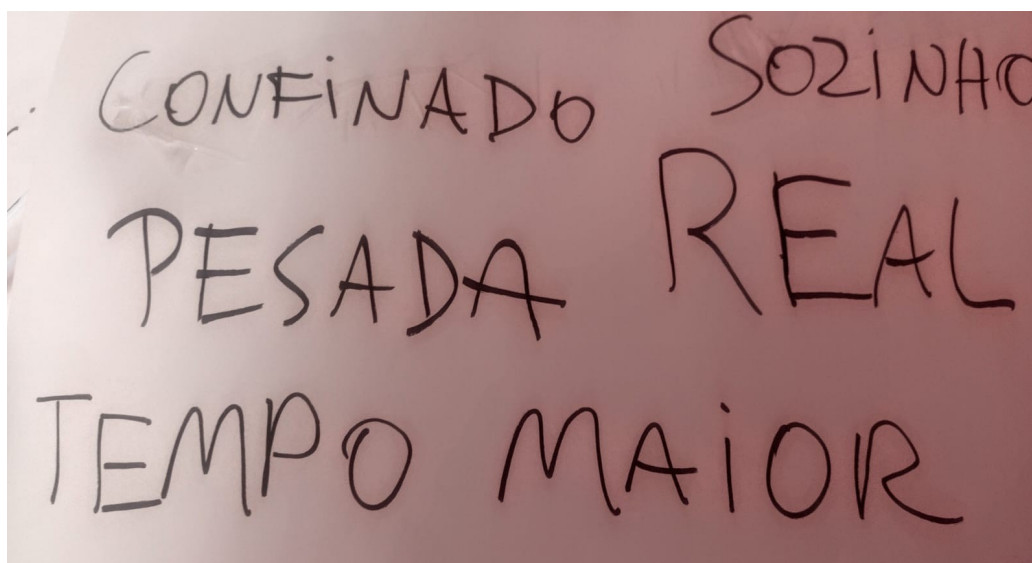 CONFiNADO SOZiNHO
PESADA REAL
TEMPO MAiOR